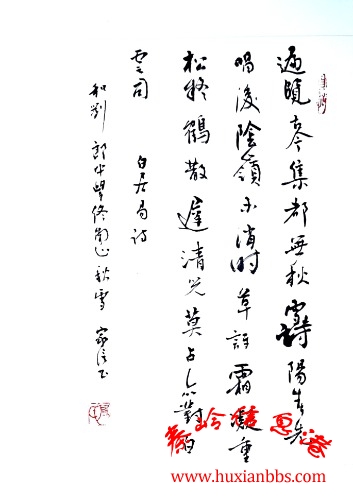 遍覽古今集都無秋雪詩陽春先
唱後陰嶺未消时草訝霜凝重
松疑鶴散遲清光莫占亦對白
雲司 白居易詩
和劉郎中望終南山秋雪 家信书
www.huxianbbs.com